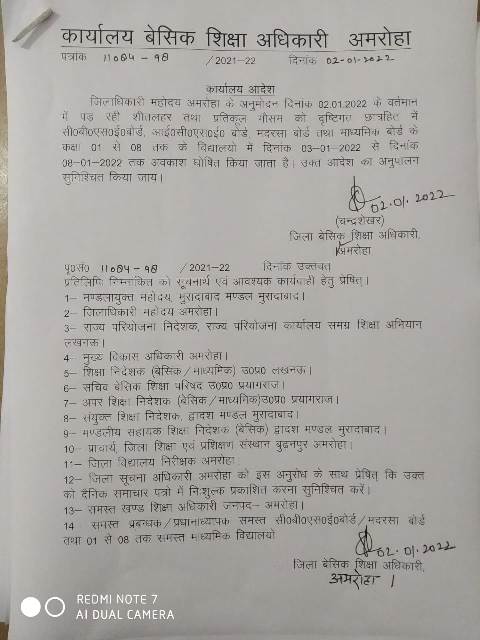 कार्यालय बेसिक शिक्षा अधिकारी अमरोहा
पत्रांक 11084-98 /2021-22 दिनांक 02-01-2022
कार्यालय आदेश
जिलाधिकारी महोदय अमरोहा के अनुमोदन दिनांक 02.01.2022 के वर्तमान
में पड़ रही शीतलहर तथा प्रतिकूल मौसम को दृष्टिगत छात्रहित में
सी०बी०एस०ई०बोर्ड, आई०सी०एस०ई० बोर्ड, मदरसा बोर्ड तथा माध्यमिक बोर्ड के
कक्षा 01 से 08 तक के विद्यालयो में दिनांक 03-01-2022 से दिनांक
08-01-2022 तक अवकाश घोषित किया जाता है। उक्त आदेश का अनुपालन
सुनिश्चित किया जाय।
02.01.2022
(चन्द्रशेखर)
जिला बेसिक शिक्षा अधिकारी,
अमरोहा
पृ०सं० 11084-98 /2021-22 दिनांक उक्तवत
प्रतिलिपि निम्नांकित को सूचनार्थ एवं आवश्यक कार्यवाही हेतु प्रेषित्।
1- मण्डलायुक्त महोदय, मुरादाबाद मण्डल मुरादाबाद।
2- जिलाधिकारी महोदय अमरोहा।
3- राज्य परियोजना निदेशक, राज्य परियोजना कार्यालय समग्र शिक्षा अभियान
लखनऊ।
4- मुख्य विकास अधिकारी अमरोहा।
5- शिक्षा निदेशक (बेसिक/माध्यमिक) उ०प्र० लखनऊ।
6- सचिव बेसिक शिक्षा परिषद उ०प्र० प्रयागराज।
7- अपर शिक्षा निदेशक (बेसिक/माध्यमिक)उ०प्र० प्रयागराज।
8- संयुक्त शिक्षा निदेशक, द्वादश मण्डल मुरादाबाद।
9- मण्डलीय सहायक शिक्षा निदेशक (बेसिक) द्वादश मण्डल मुरादाबाद।
10- प्राचार्य, जिला शिक्षा एवं प्रशिक्षण संस्थान बुढनपुर अमरोहा।
11- जिला विद्यालय निरीक्षक अमरोहा
12- जिला सूचना अधिकारी अमरोहा को इस अनुरोध के साथ प्रेषित् कि उक्त
को दैनिक समाचार पत्रो में निःशुल्क प्रकाशित करना सुनिश्चित करें।
13- समस्त खण्ड शिक्षा अधिकारी जनपद- अमरोहा।
14 समस्त प्रबन्धक/प्रधानाध्यापक समस्त सी०बी०एस०ई०बोर्ड/मदरसा बोर्ड
तथा 01 से 08 तक समस्त माध्यमिक विद्यालयों
02.01.2022
जिला बेसिक शिक्षा अधिकारी,
अमरोहा।
REDMI NOTE 7
AI DUAL CAMERA